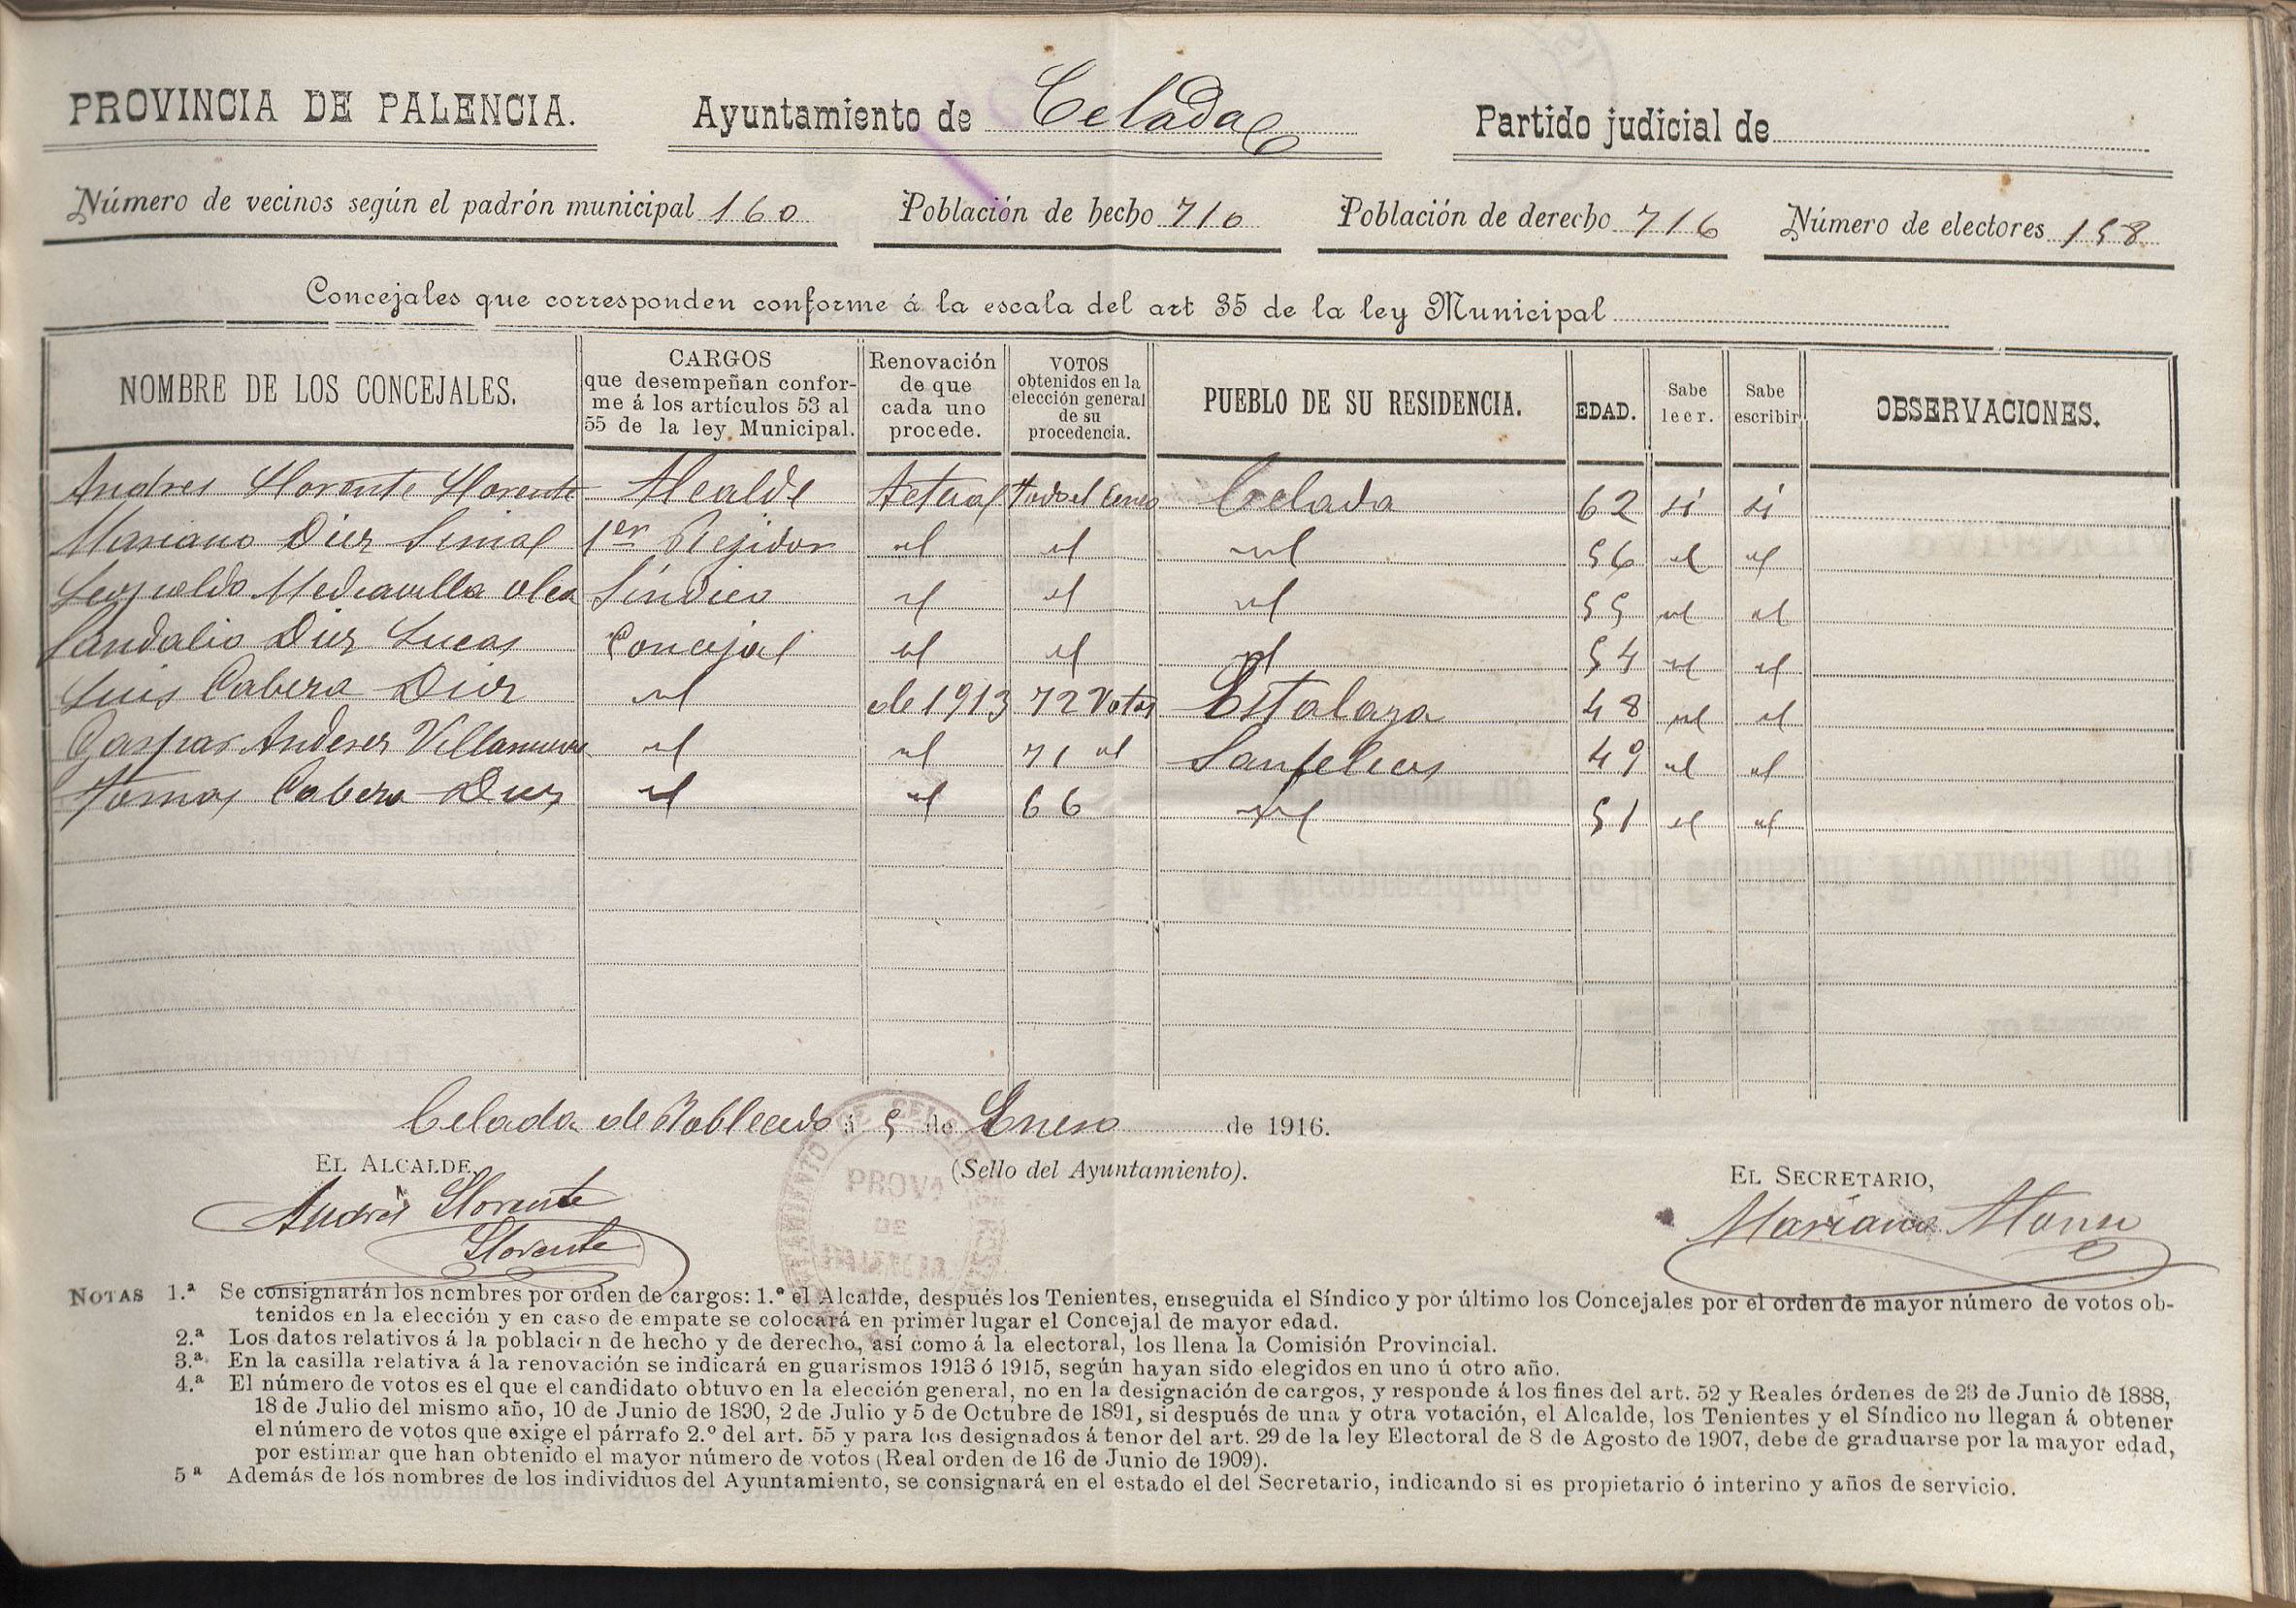 PROVINCIA DE PALENCIA. Ayuntamiento de Celada Partido judicial de
Número de vecinos según el padrón municipal 160 Población de hecho 710 Población de derecho 716 Número de electores 158
Concejales que corresponden conforme á la escala del art 35 de la ley Municipal
NOMBRE DE LOS CONCEJALES. CARGOS que desempeñan conforme á los artículos 53 al 55 de la ley Municipal. Renovación de que cada uno procede. VOTOS obtenidos en la elección general de su procedencia. PUEBLO DE SU RESIDENCIA. EDAD. Sabe leer. Sabe escribir OBSERVACIONES.
Andres Llorente Llorente Alcalde Actual todo el Celada 62 si si
Mariano Diez 1er Rejidor id id id 56 id id
Leopoldo Mediavilla Síndico id id id 55 id id
Sandalio Diez Lucas Concejal id id id 54 id id
Luis Cabeza Diez id de 1913 72 Votos Estalaya 48 id id
Gaspar Anderez Villanueva id id 71 id Sanfelices 49 id id
Tomas Cabeza Diez id id 66 id 51 id id
Celada de Roblecedo á 5 de Enero de 1916.
EL ALCALDE, (Sello del Ayuntamiento). EL SECRETARIO,
Andrés Llorente Mariano
Llorente
PROVA
DE
NOTAS 1.ª Se consignarán los nombres por orden de cargos: 1.º el Alcalde, después los Tenientes, enseguida el Síndico y por último los Concejales por el orden de mayor número de votos ob-
tenidos en la elección y en caso de empate se colocará en primer lugar el Concejal de mayor edad.
2.ª Los datos relativos á la població n de hecho y de derecho, así como á la electoral, los llena la Comisión Provincial.
3.ª En la casilla relativa á la renovación se indicará en guarismos 1913 ó 1915, según hayan sido elegidos en uno ú otro año.
4.ª El número de votos es el que el candidato obtuvo en la elección general, no en la designación de cargos, y responde á los fines del art. 52 y Reales órdenes de 23 de Junio de 1888,
18 de Julio del mismo año, 10 de Junio de 1890, 2 de Julio y 5 de Octubre de 1891, si después de una y otra votación, el Alcalde, los Tenientes y el Síndico no llegan á obtener
el número de votos que exige el párrafo 2.º del art. 55 y para los designados á tenor del art. 29 de la ley Electoral de 8 de Agosto de 1907, debe de graduarse por la mayor edad,
por estimar que han obtenido el mayor número de votos (Real orden de 16 de Junio de 1909).
5ª Además de los nombres de los individuos del Ayuntamiento, se consignará en el estado el del Secretario, indicando si es propietario ó interino y años de servicio.